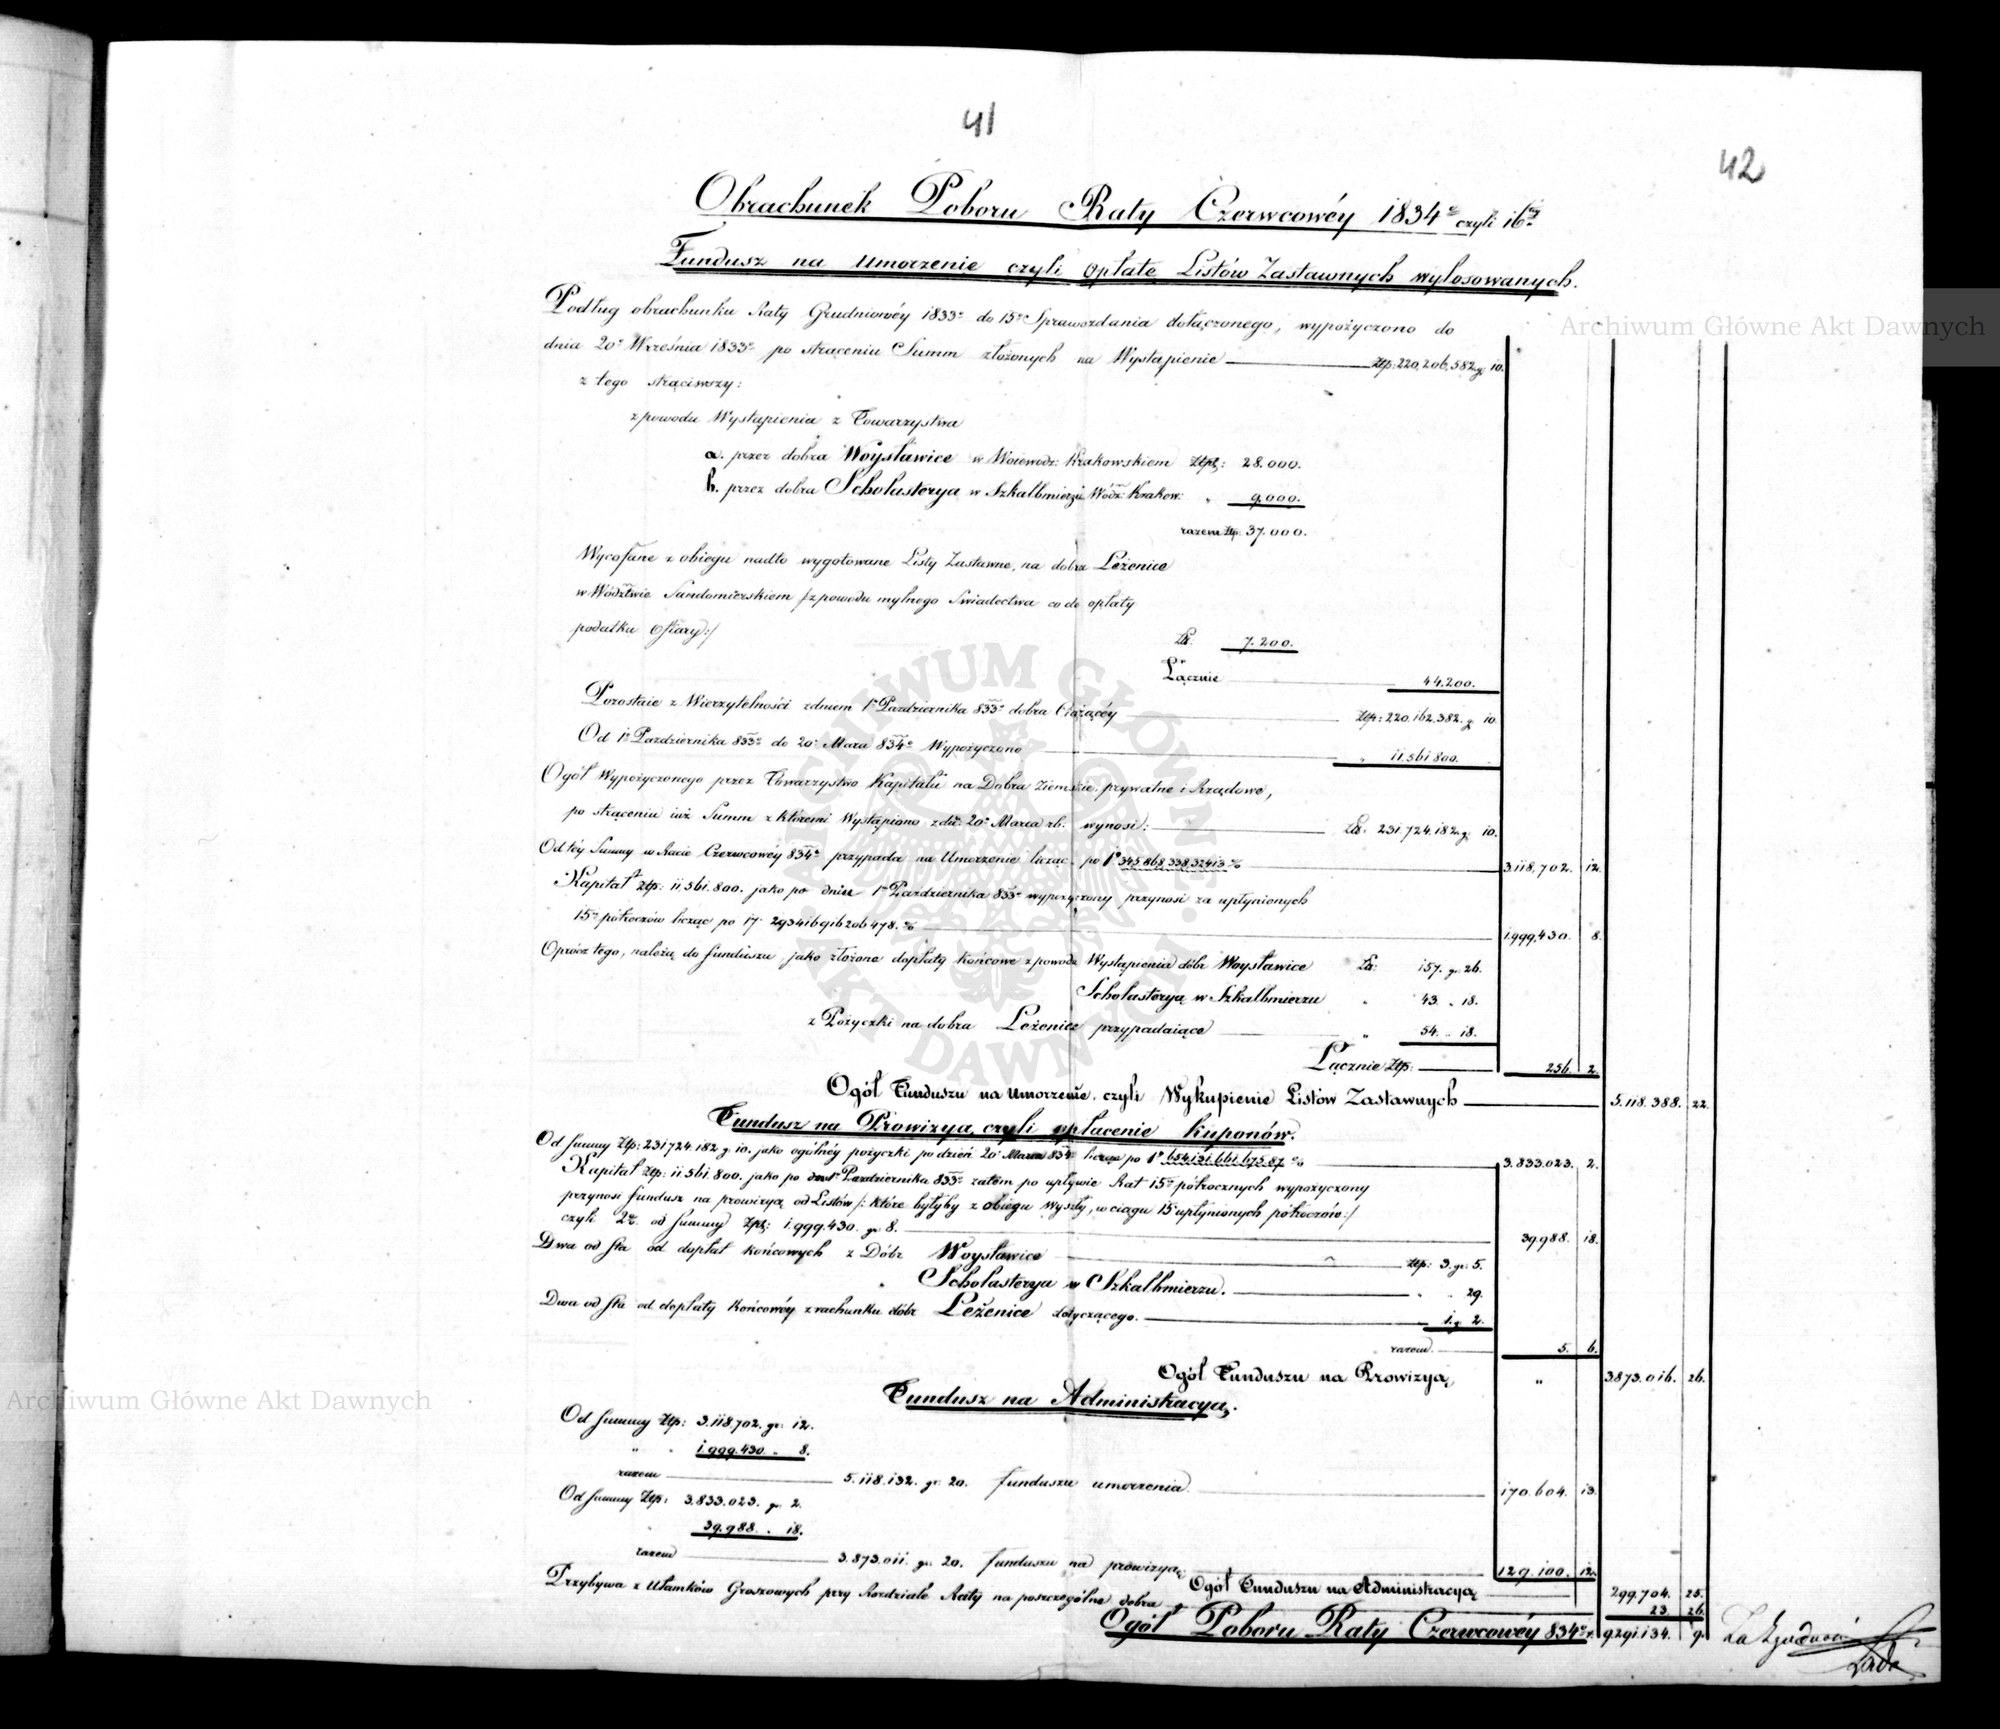 41
42
Obrachunek Poboru Raty Czerwcowéy 1834 czyli 16
Fundusz na Umorzenie czyli Opłatę Listów Zastawnych wylosowanych.
Podług obrachunku Raty Grudniowéy 1833 do 15 Sprawozdania dołączonego, wypożyczono do
dnia 20 Września 1833 po strąceniu Summ złożonych na Wystąpienie Złp: 220,206,582 g. 10.
z tego strąciwszy:
z powodu Wystąpienia z Towarzystwa
a. przez dobra Woysławice w Woiewodz: Krakowskiem Złp: 28.000.
b. przez dobra Scholasterya w Szkalbmierzu Wódz: Krakow: " 9,000.
razem Złp. 37.000.
Wycofane z obiegu nadto wygotowane Listy Zastawne, na dobra Leżenice
w Wództwie Sandomierskiem /:z powodu mylnego Swiadectwa co do opłaty
podatku Ofiary:/ Zł: 7.200.
Łącznie 44.200.
Pozostaie z Wierzytelności z dniem 1 Pazdziernika 833 dobra Ciążącéy Złp: 220.162.382. g. 10.
Od 1 Pazdziernika 833 do 20 Marca 834 Wypożyczono " 11.561.800.
Ogół Wypożyczonego przez Towarzystwo Kapitału na Dobra Ziemskie prywatne i Rządowe,
po strąceniu iuż Summ z któremi Wystąpiono z dn: 20 Marca rb. wynosi: Zł: 231.724.182 g. 10.
Od téy Summy w Racie Czerwcowéy 834 przypada na Umorzenie licząc po 1 345.868.338.32413 % 3.118,702. 12.
Kapitał Złp: 11.561.800. jako po dniu 1 Pazdziernika 833 wypożyczony przynosi za upłynionych
15 półroczów licząc po 17. 293416916206478. % 1.999,430. 8.
Oprócz tego, należą do funduszu, jako złożone dopłaty końcowe z powodu Wystąpienia dóbr Woysławice Zł: 157. gr 26.
Scholasteryą w Szkalbmierzu " 43. " 18.
z Pożyczki na dobra Leżenice przypadaiące " 54. " 18.
Łącznie Złp: 256. 2.
Ogół Funduszu na Umorzenie, czyli Wykupienie Listów Zastawnych 5.118.388. 22.
Fundusz na Prowizyą czyli opłacenie Kuponów.
Od summy Złp: 231724.182 g. 10. jako ogólnéy pożyczki po dzień 20 Marca 834 licząc po 1 654131.661.67587 % 3.833.023. 2.
Kapitał Złp: 11.561.800. jako po dniu 1 Pazdziernika 833 zatém po upływie Rat 15 półrocznych wypożyczony
przynosi fundusz na prowizyą od Listów /: które byłyby z obiegu wyszły, w ciągu 15 upłynionych półroczów:/
czyli 2% od summy Złp: 1.999.430. gr 8. 39.988. 18.
Dwa od sta od dopłat końcowych z Dóbr Woysławice Złp: 3. gr. 5.
Scholasterya w Szkalbmierzu. " " 29.
Dwa od sta od dopłaty Końcowéy z rachunku dóbr Leżenice dotyczącego. 1. g 2.
razem 5. 6.
Ogół Funduszu na Prowizyą " 3873.016. 26.
Fundusz na Administracyą.
Od summy Złp: 3.118,702. gr. 12.
" " 1.999.430 " 8.
razem 5.118.132. gr. 20. funduszu umorzenia 170.604. 13.
Od summy Złp: 3.833.023. g. 2.
" 39.988. " 18.
razem 3.873.011. gr. 20. funduszu na prowizyą 129.100. 12.
Ogół Funduszu na Administracyą 299,704. 25.
Przybywa z Ułamków Groszowych przy Rozdziale Raty na poszczególne dobra 23. 26.
Ogół Poboru Raty Czerwcowéy 834 r. 9291.134. 9.
Za Zgodność
Archiwum Główne Akt Dawnych
Archiwum Główne Akt Dawnych
ARCHIWUM GŁÓWNE AKT DAWNYCH